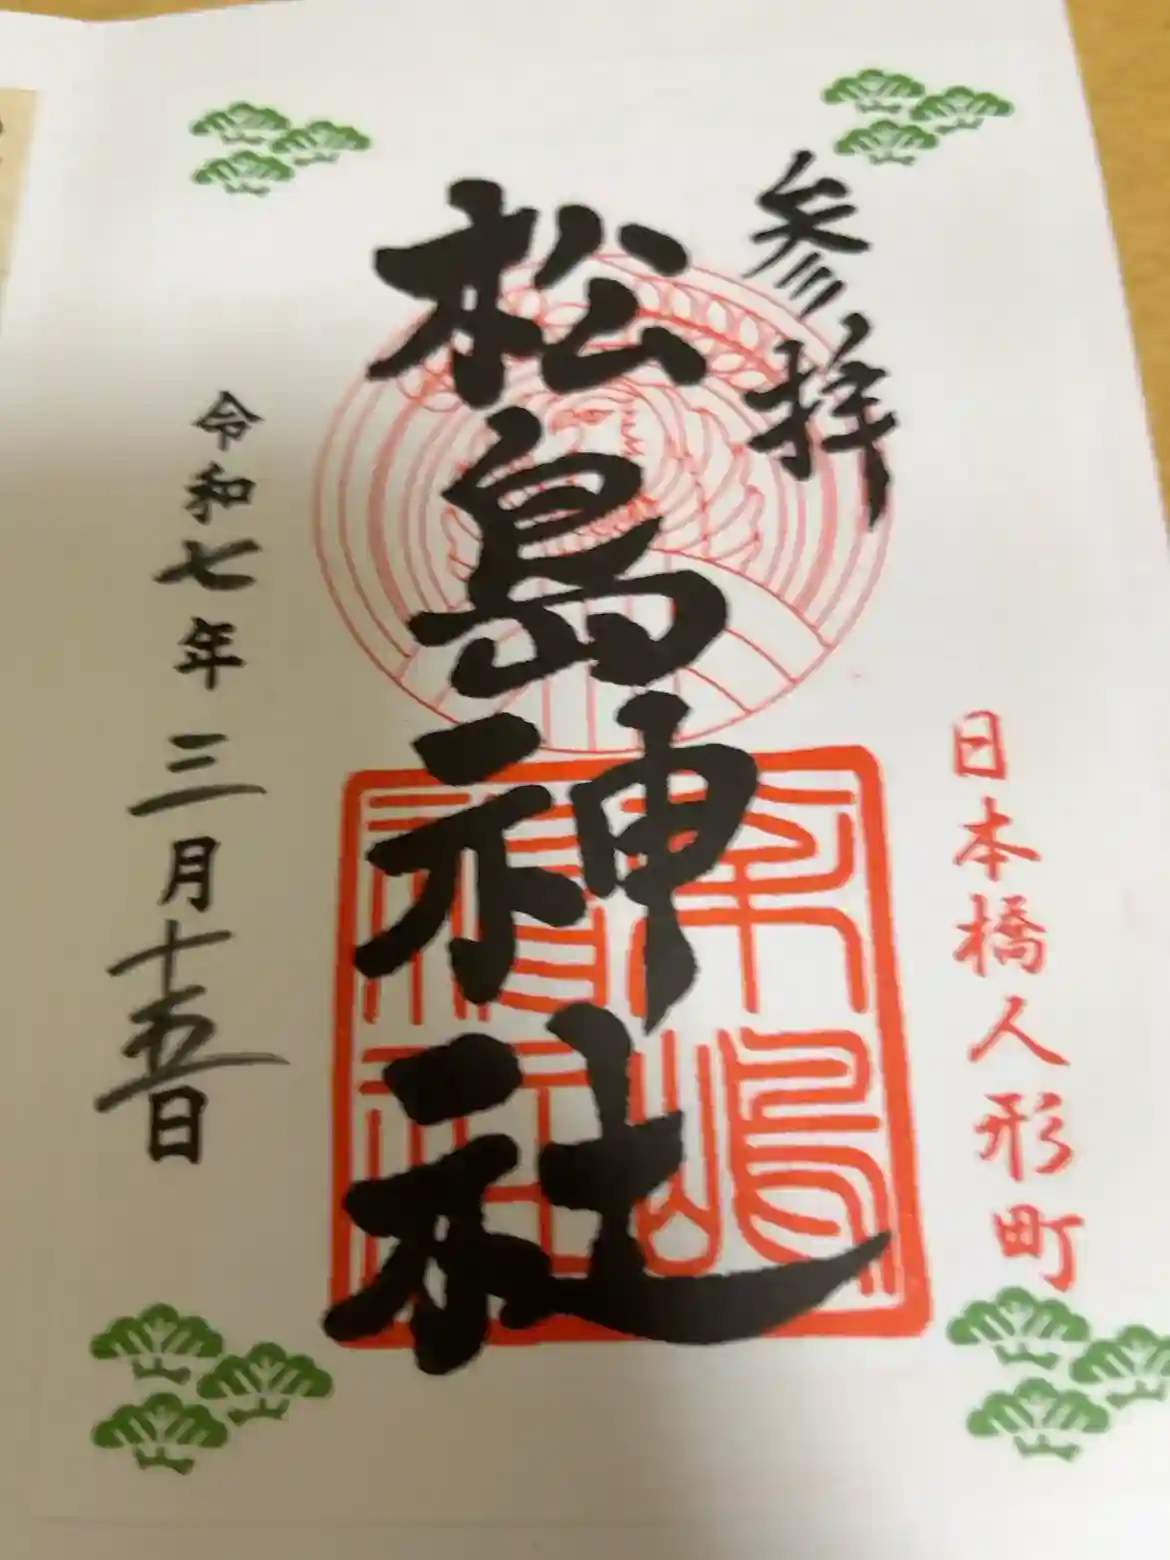 参拝
日本橋人形町
松島神社
令和七年三月十五日